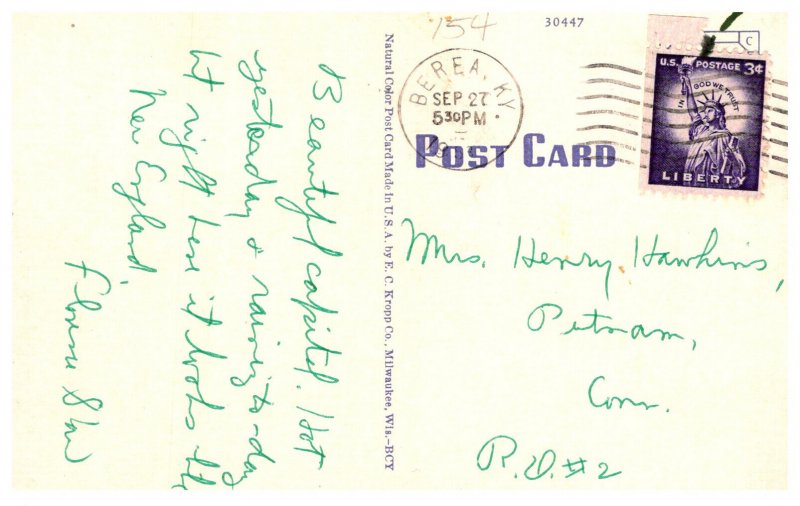 154
30447
C
BEREA, KY.
SEP 27
530PM
19
U.S. POSTAGE 3¢
IN GOD WE TRUST
LIBERTY
POST CARD
Natural Color Post Card Made in U.S.A. by E. C. Kropp Co., Milwaukee, Wis.—BCY
Beautiful capitol. Hot
yesterday & rainy to-day
but right here it looks like
New England.
Florence
Mrs. Henry Hawkins,
Putnam,
Conn.
R.D.#2